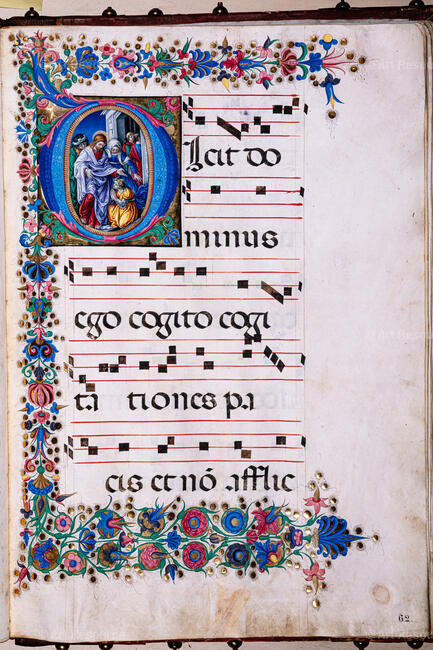 Dicit do
minus
ego cogito cogi
tationes pa
cis et nō afflic
62